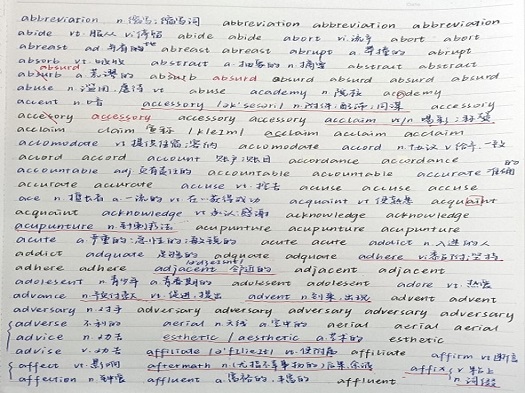 abbreviation n.缩写;缩写词 abbreviation abbreviation abbreviation
abide vt.服从 vi.停留 abide abide abort vi.流产 abort abort
abreast ad.并肩的地 abreast abreast abrupt a.莽撞的 abrupt
absorb vt.吸收 abstract a.抽象的 n.摘要 abstract abstract
absurd
absurb a.荒谬的 absurb absurd absurd absurd absurd absurd
abuse n.滥用;虐待 vt abuse academy n.院校 academy
accent n.口音 accessory n.附件;配饰;同谋 accessory
accesory accessory accessory accessory acclaim vt/n 喝彩;称赞
acclaim claim 宣称 /kleim/ acclaim acclaim acclaim
accomodate vt.提供住宿;容纳 accomodate accord n.协议 v.给予,一致
accord accord account 账户;账目 accordance accordance
accountable adj.负有责任的 accountable accountable accurate 准确的
accurate accurate accuse vt.控告 accuse accuse accuse
ace n.擅长者 a.一流的 vt.在…获得成功 acquaint vt.使熟悉 acquaint
acquaint acknowledge vt.承认;感谢 acknowledge acknowledge
acupunture n.针刺疗法 acupunture acupunture acupunture
acute a.严重的;急性的;敏锐的 acute acute addict n.入迷的人
addict adquate 足够的 adquate adquate adhere vi.
adhere adhere adjacent 邻近的 adjacent adjacent
adolesent n.青少年 a.青春期的 adolesent adolesent adore vt.热爱
advance n. vt.促进;提出 advent n.到来,出现 advent advent
adversary n.对手 adversary adversary adversary adversary adversary
adverse 不利的 aerial n.天线 a.空中的 aerial aerial aerial
advice n.劝告 esthetic / aesthetic a.艺术的 esthetic
advise v.劝告 affiliate vt.使附属 affiliate affirm vt.断言
affect vt.影响 aftermath n.(尤指不幸事物的)后果,余波 affix vt.粘上
affection n.钟爱 affluent a.富裕的,丰富的 affluent n.词缀